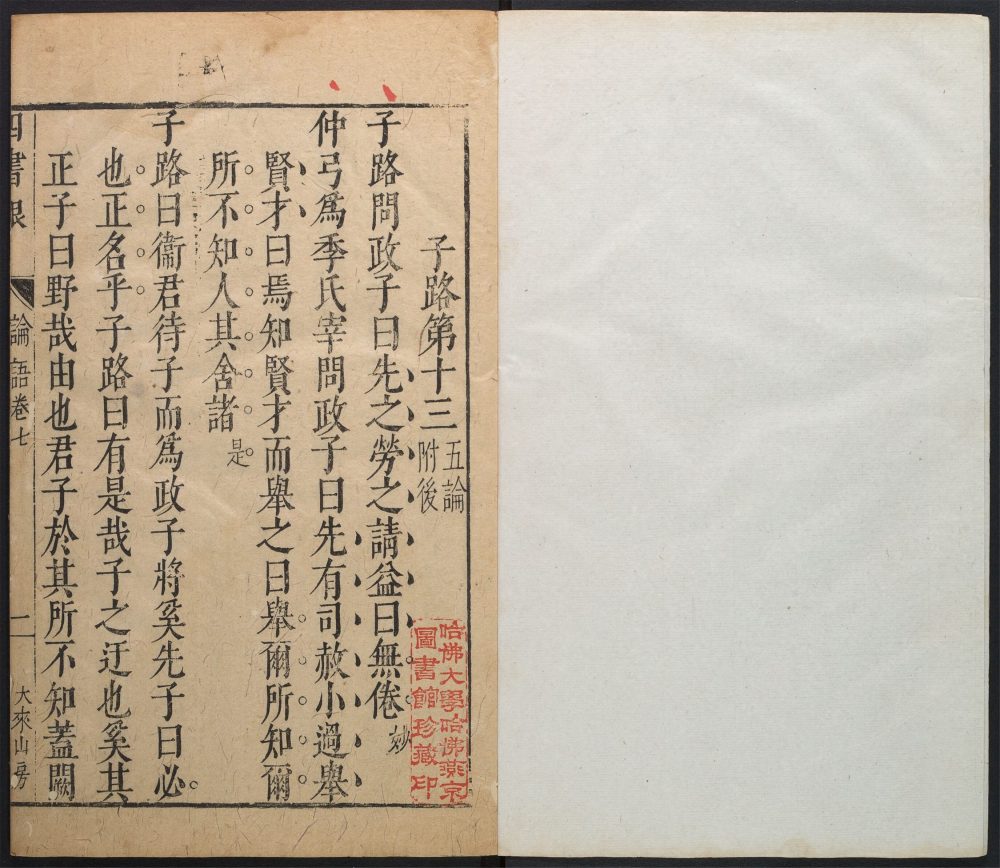 子路第十三 五論附後
子路問政子曰先之勞之請益曰無倦 妙
仲弓爲季氏宰問政子曰先有司赦小過舉
賢才曰焉知賢才而舉之曰舉爾所知爾
所不知人其舍諸 是
子路曰衞君待子而爲政子將奚先子曰必
也正名乎子路曰有是哉子之迂也奚其
正子曰野哉由也君子於其所不知蓋闕
四書眼 論語卷七 一 大來山房
哈佛大學哈佛燕京
圖書館珍藏印